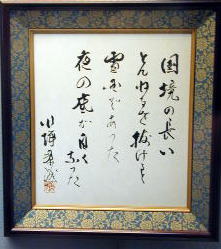 国境の長い
とんねるを抜けると
雪国であった
夜の底が白くなった
川端康成